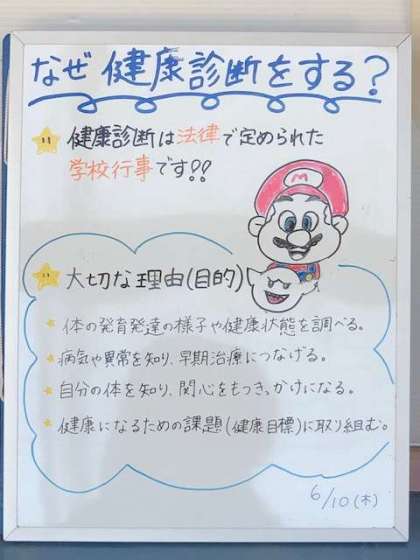 なぜ 健康診断をする?
健康診断は法律で定められた
学校行事です!!
M
大切な理由(目的)
体の発育発達の様子や健康状態を調べる。
病気や異常を知り、早期治療につなげる。
自分の体を知り、関心をもつきっかけになる。
健康になるための課題(健康目標)に取り組む。
6/10(木)